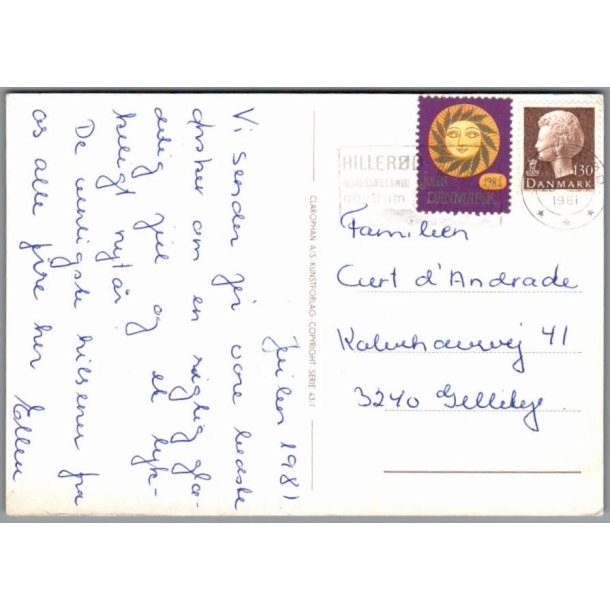 Julen 1981.
Vi sender jer vore bedste
ønsker om en rigtig glæ-
delig jul og et lyk-
keligt nytår!
De venligste hilsener fra
os alle fire her
CLAROPHAN A/S KUNSTFORLAG COPYRIGHT SERIE 43:1
HILLERØD
NORDSJÆLLANDS
centrum
JULEN 1981
DANMARK
130
DANMARK
1981
Familien
Curt d'Andrade
41
3240